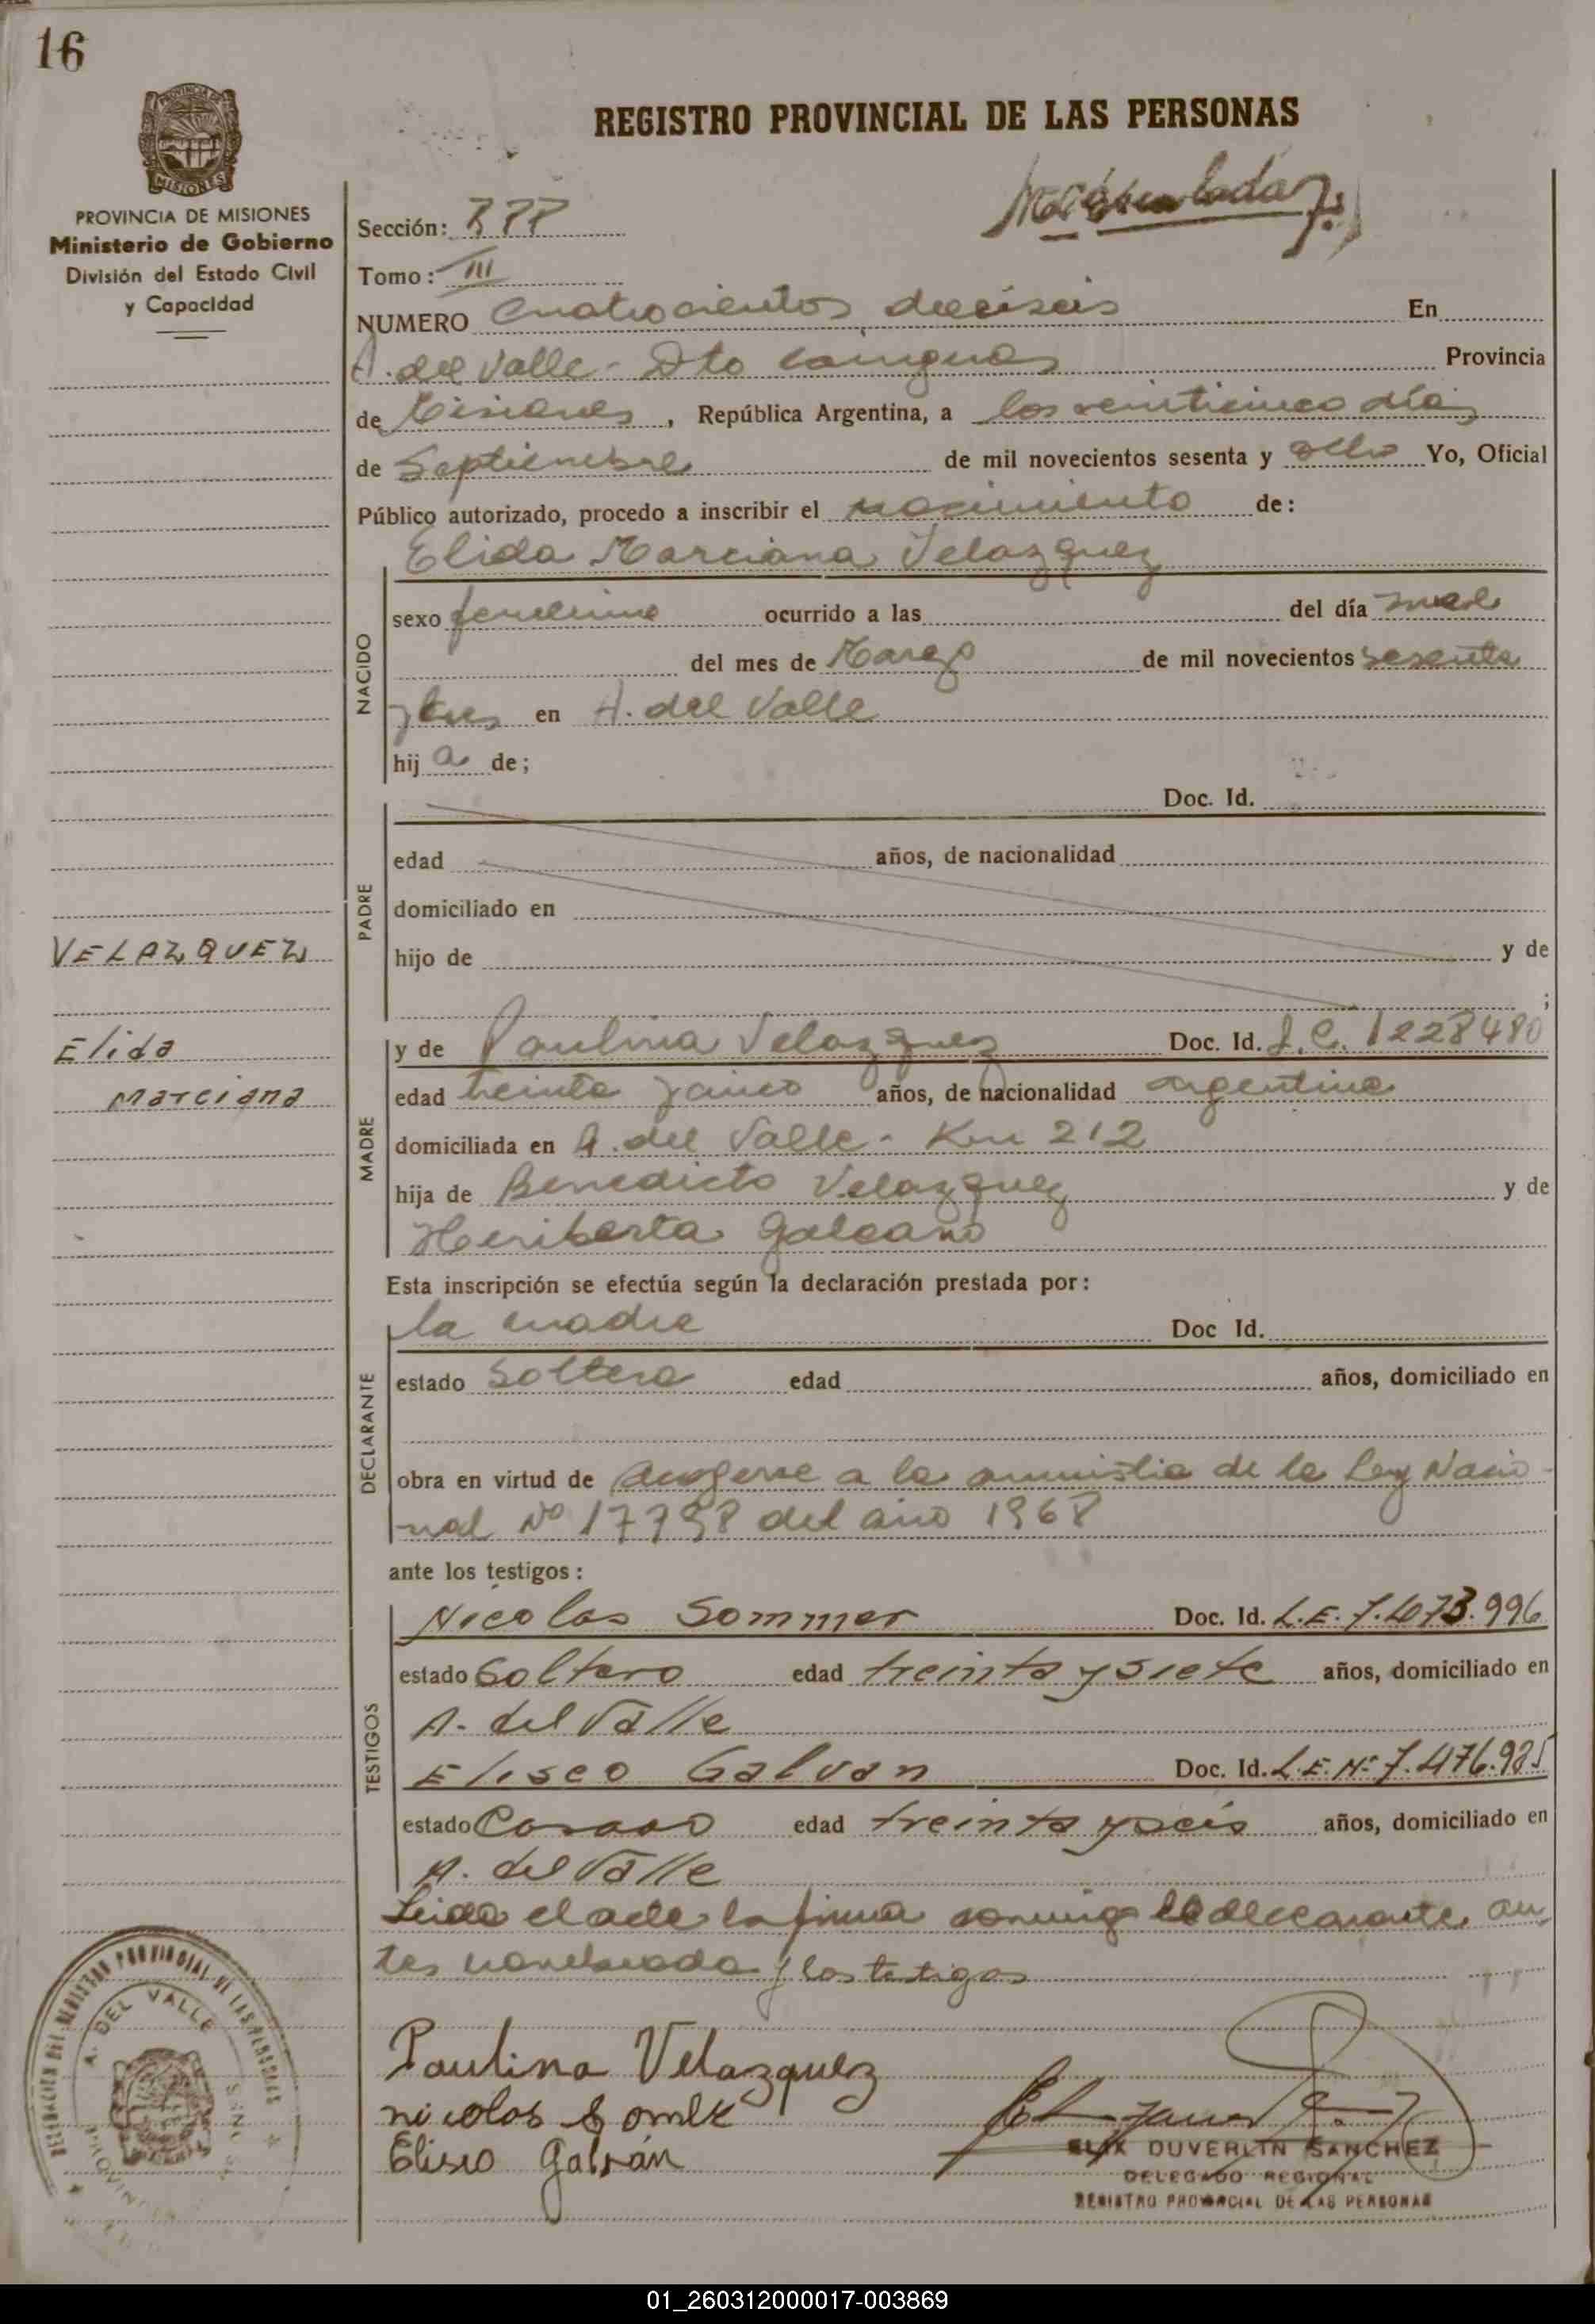 16
REGISTRO PROVINCIAL DE LAS PERSONAS
PROVINCIA DE MISIONES
Ministerio de Gobierno
División del Estado Civil
y Capacidad
Sección:
Tomo: III
NUMERO Cuatrocientos dieciseis En
A. del Valle - Dto Cainguas Provincia
de Misiones, República Argentina, a los veinticinco días
de Septiembre de mil novecientos sesenta y ocho Yo, Oficial
Público autorizado, procedo a inscribir el nacimiento de:
Elida Marciana Velazquez
NACIDO
sexo femenino ocurrido a las del día
del mes de Marzo de mil novecientos sesenta
y tres en A. del Valle
hij a de;
PADRE
Doc. Id.
edad años, de nacionalidad
domiciliado en
hijo de y de
;
VELAZQUEZ
Elida
Marciana
MADRE
y de Paulina Velazquez Doc. Id. L.C. 1228480
edad treinta y cinco años, de nacionalidad argentina
domiciliada en A. del Valle - Km 212
hija de Benedicto Velazquez y de
Heriberta Galeano
Esta inscripción se efectúa según la declaración prestada por:
DECLARANTE
la madre Doc Id.
estado Soltera edad años, domiciliado en
obra en virtud de acogerse a la amnistia de la Ley Nacio-
nal Nº 17798 del año 1968
ante los testigos:
TESTIGOS
Nicolas Sommer Doc. Id. L.E. 7.473.996
estado Soltero edad treinta y siete años, domiciliado en
A. del Valle
Eliseo Galvan Doc. Id. L.E. Nº 7.476.985
estado Casado edad treinta y seis años, domiciliado en
A. del Valle
Leida el acta la firma conmigo la declarante, an
tes nombrada y los testigos
Paulina Velazquez
nicolas
Eliseo Galván
A. DEL VALLE
ELIX DUVERLIN SANCHEZ
DELEGADO REGIONAL
REGISTRO PROVINCIAL DE LAS PERSONAS
01_260312000017-003869